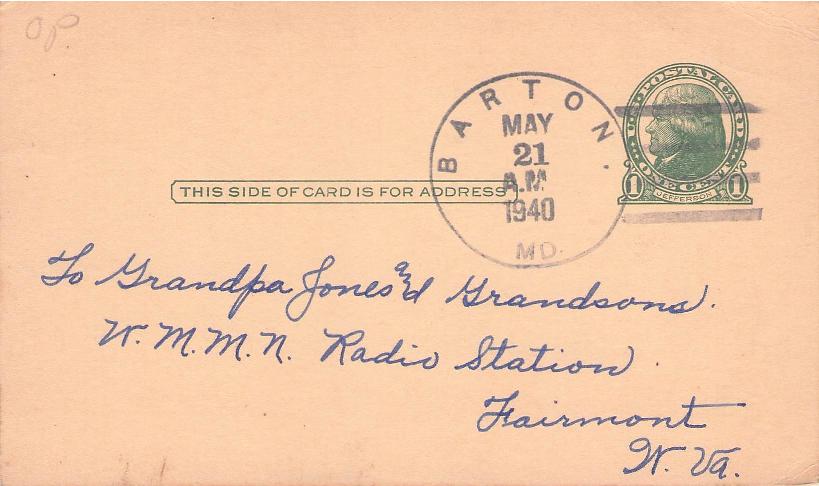 OP
BARTON
MAY
21
A.M.
1940
MD.
U.S. POSTAL CARD
ONE CENT
1 JEFFERSON 1
THIS SIDE OF CARD IS FOR ADDRESS
To Grandpa Jones and Grandsons.
W.M.M.N. Radio Station
Fairmont
W. Va.